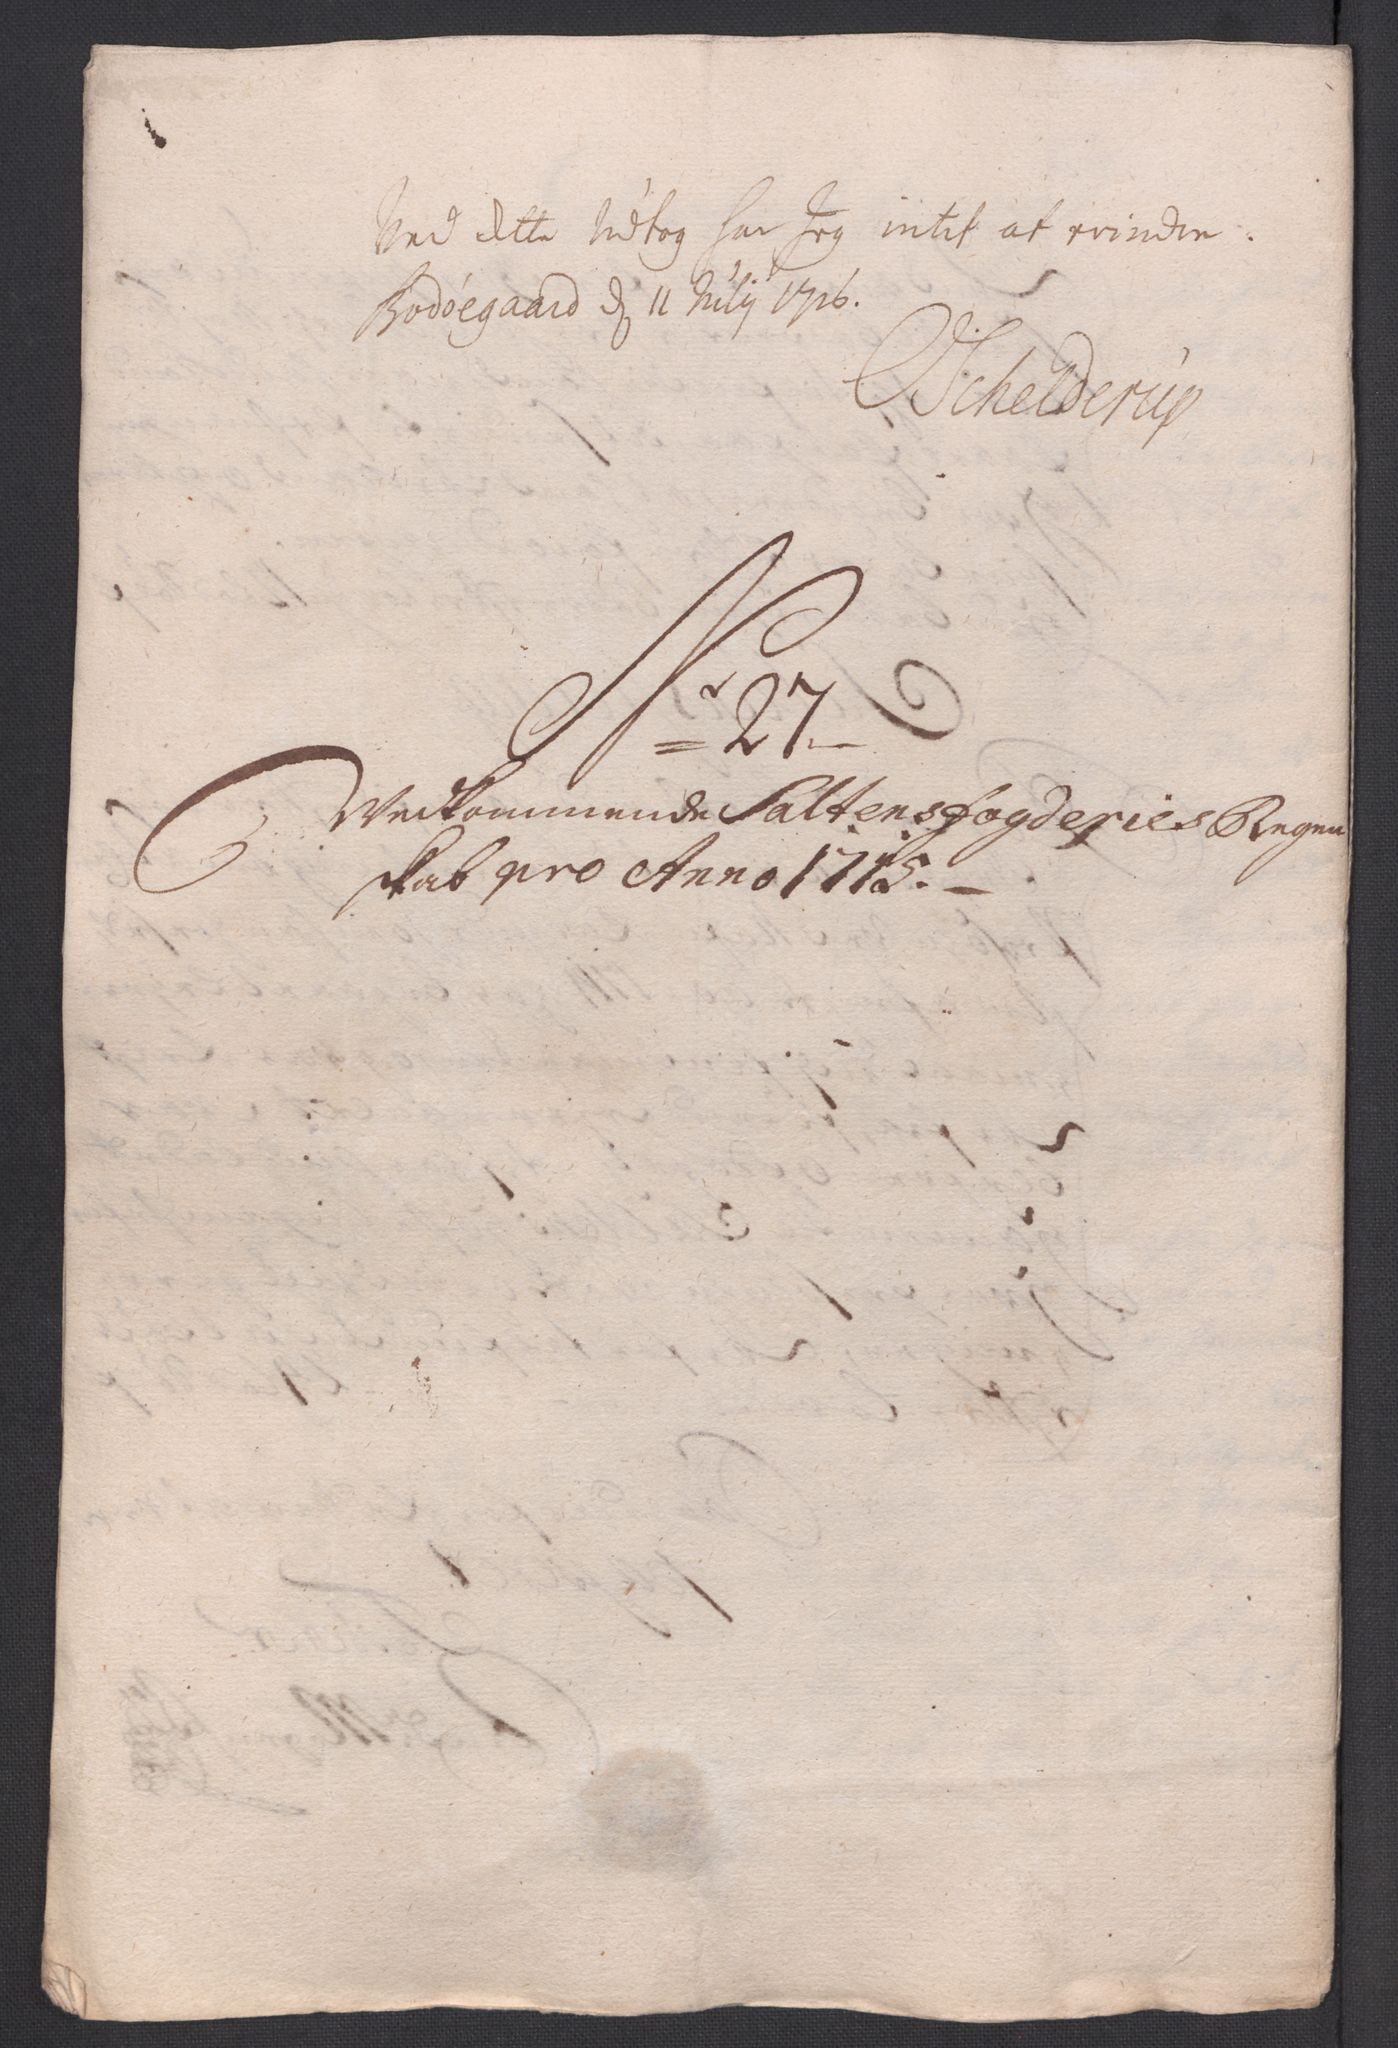 Ved dette Udtog har Jeg intet at erindre.
Bodøegaard d 11 Julij 1716.
Schelderup
Nr 27
Vedkommende Saltens fogderies Regen
skab pro Anno 1715.